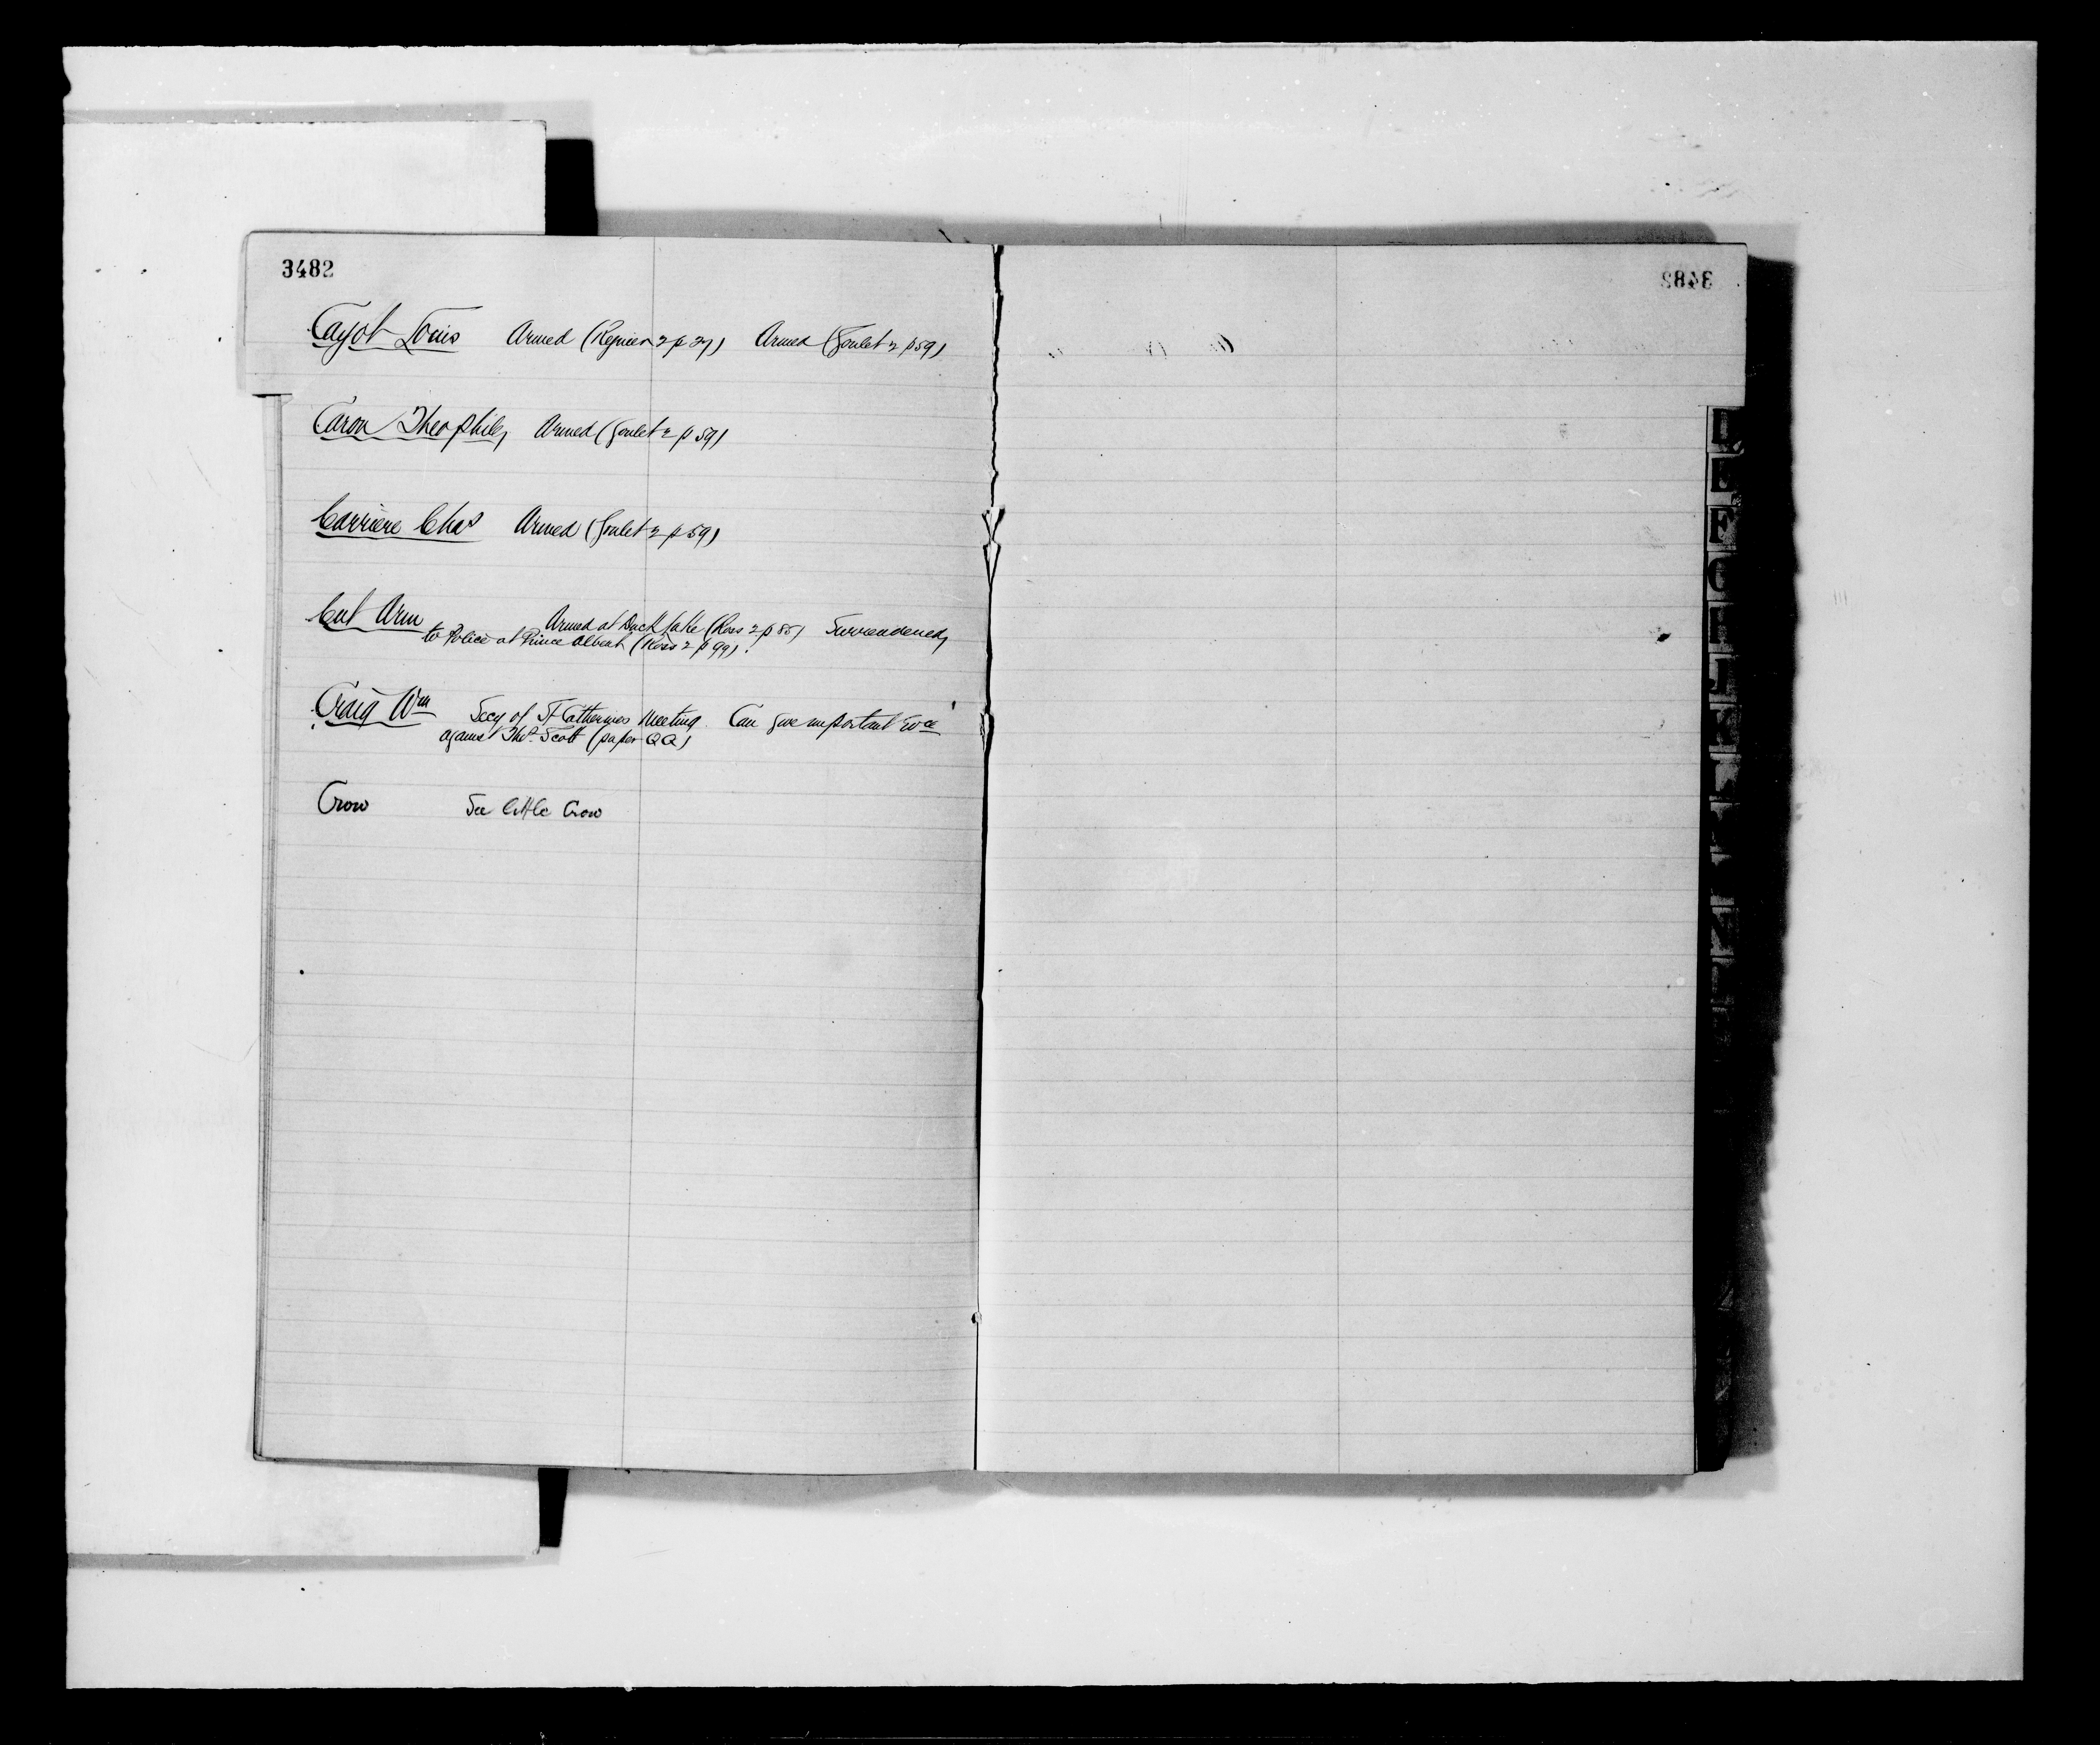 3482
Cayol Louis Armed (Regnier 2 p 27) Armed (Goulet 2 p 59)
Caron Theophile, Armed (Goulet 2 p 59)
Carriere Chas Armed (Goulet 2 p 59)
Cut Arm Armed at Duck Lake (Ross 2 p 85) Surrendered,
to Police at Prince Albert (Ross 2 p 99).
Craig Wm Secy of St Catherines Meeting. Can give important Evce
against Thos. Scott (paper QQ)
Crow See little Crow